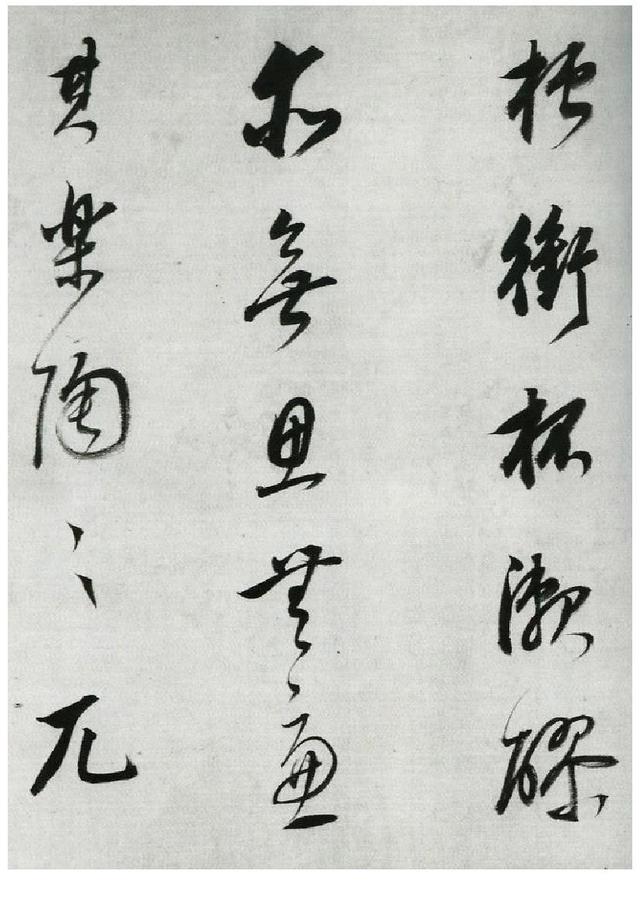 槽銜杯漱醪
無思無慮
其楽陶〻兀